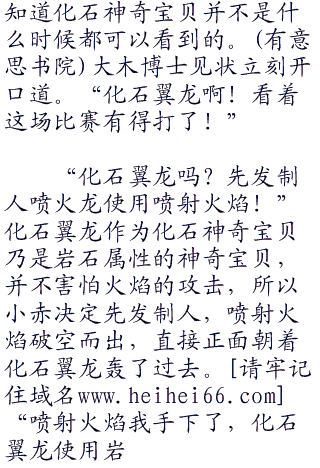 知道化石神奇宝贝并不是什
么时候都可以看到的。(有意
思书院)大木博士见状立刻开
口道。“化石翼龙啊！看着
这场比赛有得打了！”
“化石翼龙吗？先发制
人喷火龙使用喷射火焰！”
化石翼龙作为化石神奇宝贝
乃是岩石属性的神奇宝贝，
并不害怕火焰的攻击，所以
小赤决定先发制人，喷射火
焰破空而出，直接正面朝着
化石翼龙轰了过去。[请牢记
住域名www.heihei66.com]
“喷射火焰我手下了，化石
翼龙使用岩